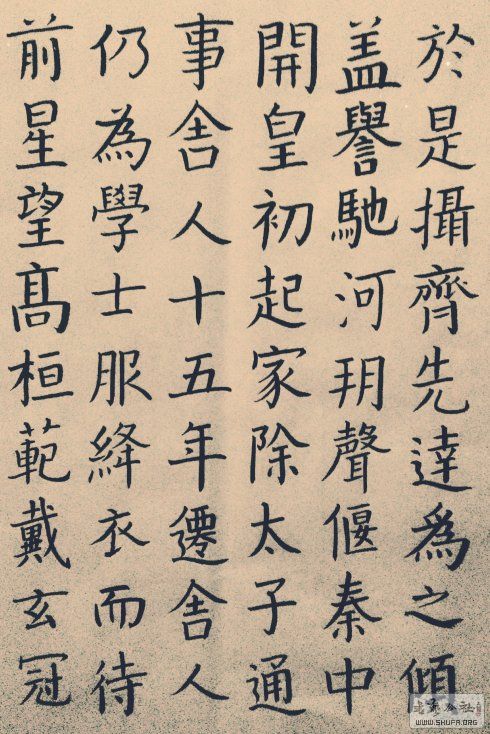 於是攝齊先達為之傾
盖譽馳河玥聲偃秦中
開皇初起家除太子通
事舍人十五年遷舍人
仍為學士服絳衣而待
前星望髙桓範戴玄冠
WWW.SHUFA.ORG